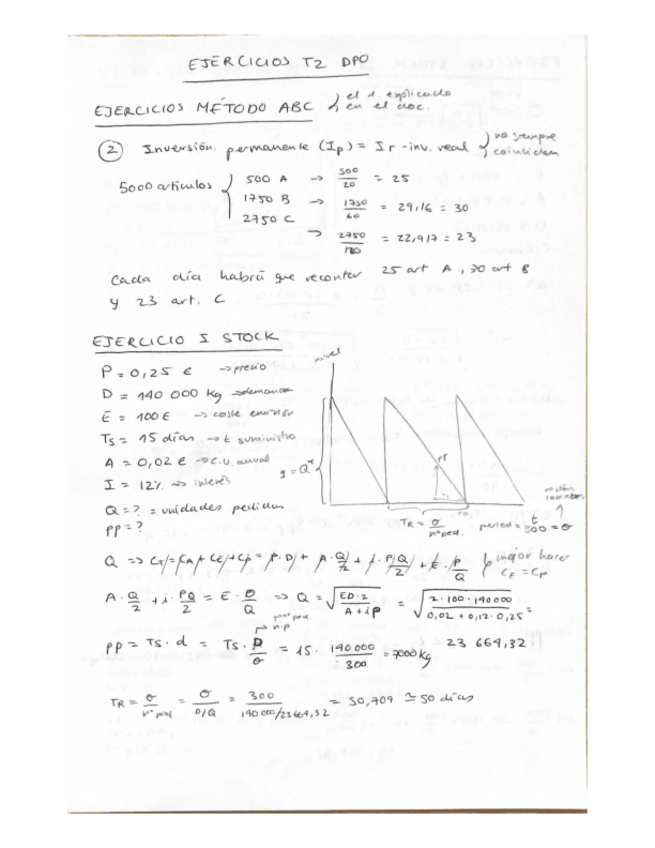 EJERCICIOS T2 DPO
EJERCICIOS MÉTODO ABC } el 1. explicado en el doc.
② Inversión permanente (Ip) = Ir - inv. real } no siempre coinciden
5000 artículos { 500 A → 500/20 = 25
1750 B → 1750/60 = 29,16 = 30
2750 C → 2750/120 = 22,917 = 23
Cada día habrá que recontar 25 art A, 30 art B
y 23 art. C
EJERCICIO I STOCK
P = 0,25 € → precio
D = 140 000 kg → demanda
E = 100 € → coste emisión
Ts = 15 días → t suministro
A = 0,02 € → c.u. anual
I = 12% → interés
Q = ? = unidades pedidas
PP = ?
nivel
q = Q*
TR = θ/nº ped.
period = 300 = θ
Q => CT = CA + CE + Cp = P·D + A·Q/2 + i·PQ/2 + E·D/Q } mejor hacer CE = Cp
A·Q/2 + i·PQ/2 = E·D/Q => Q = √(ED·2/A+ip) = √(2·100·140000/0,02+0,12·0,25) =
23 664,32
PP = Ts·d = Ts·D/θ = 15·140 000/300 = 7000 kg
TR = θ/nº ped = θ/D/Q = 300/140 000/23664,32 = 50,709 ≃ 50 días